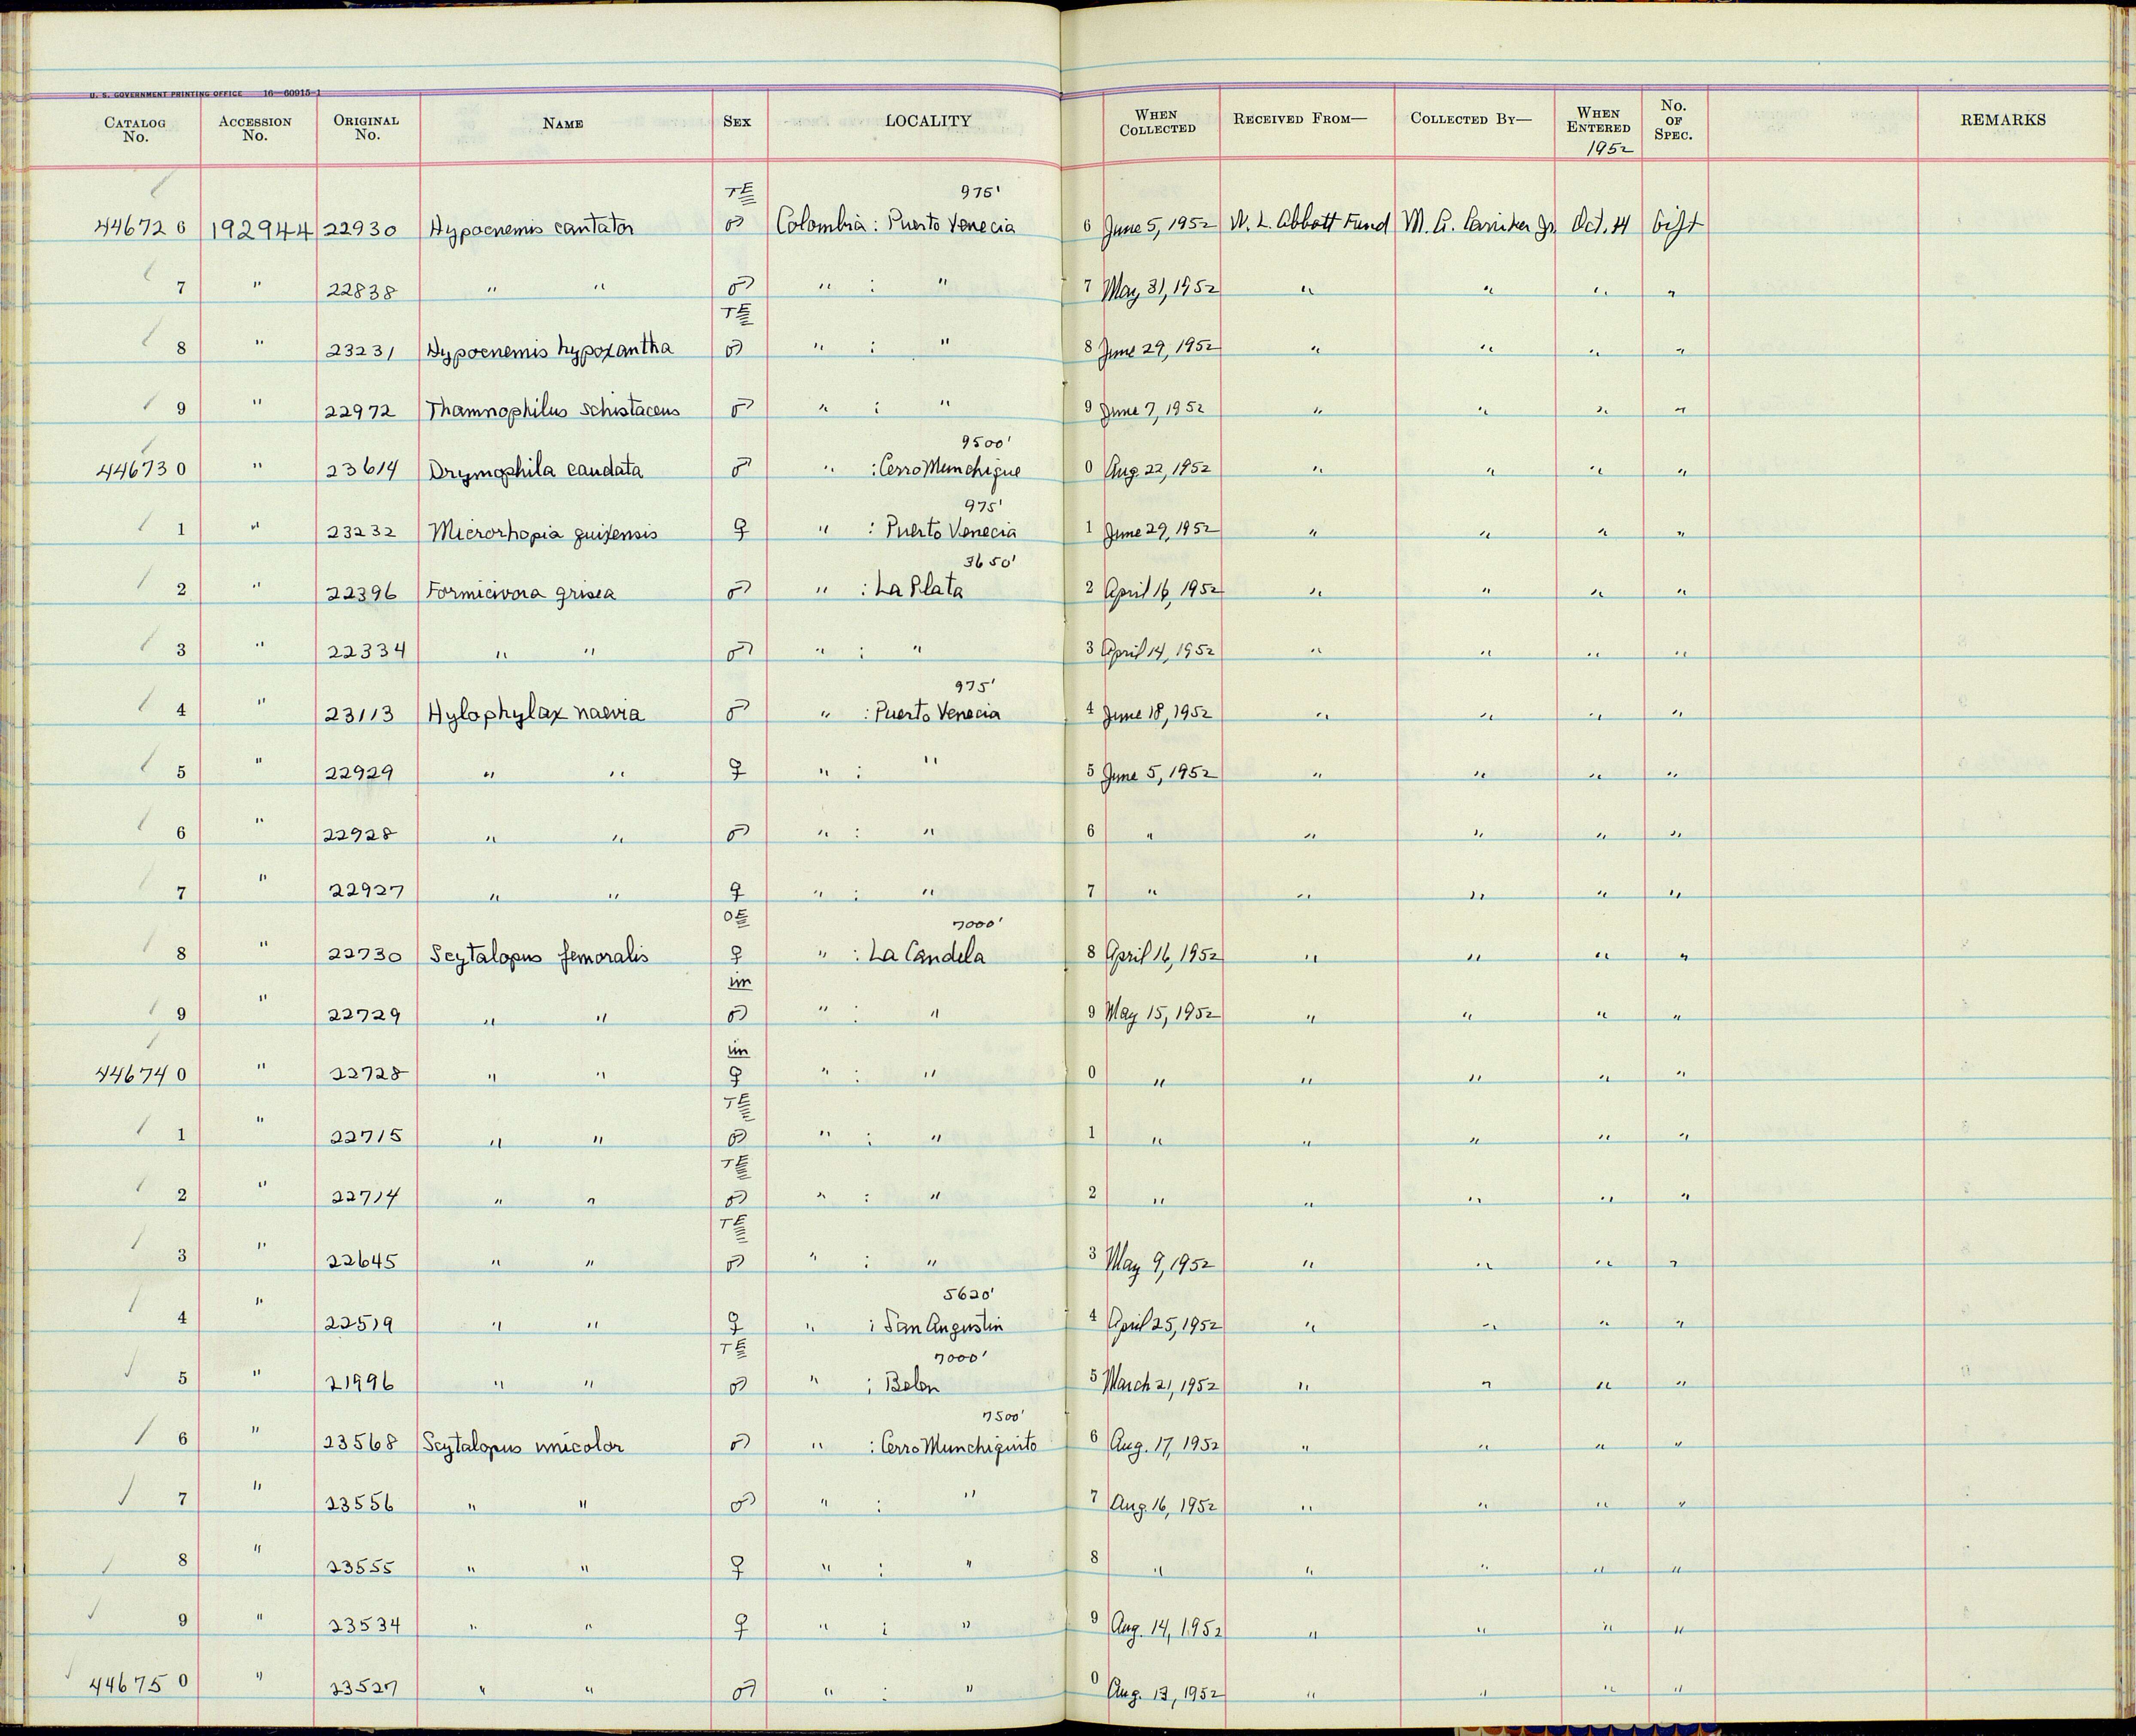 U. S. GOVERNMENT PRINTING OFFICE 16—60915-1
CATALOG No. ACCESSION No. ORIGINAL No. NAME SEX LOCALITY WHEN COLLECTED RECEIVED FROM— COLLECTED BY— WHEN ENTERED 1952 No. OF SPEC. REMARKS
TE 975'
446726 192944 22930 Hypocnemis cantator ♂ Colombia : Puerto Venecia 6 June 5, 1952 W. L. Abbott Fund M. A. Carriker Jr. Oct. 14 Gift
7 " 22838 " " ♂ " : " 7 May 31, 1952 " " " "
TE
8 " 23231 Hypocnemis hypoxantha ♂ " : " 8 June 29, 1952 " " " "
9 " 22972 Thamnophilus schistaceus ♂ " : " 9 June 7, 1952 " " " "
9500'
446730 " 23614 Drymophila caudata ♂ " : Cerro Munchique 0 Aug. 22, 1952 " " " "
975'
1 " 23232 Microrhopia quixensis ♀ " : Puerto Venecia 1 June 29, 1952 " " " "
3650'
2 " 22396 Formicivora grisea ♂ " : La Plata 2 April 16, 1952 " " " "
3 " 22334 " " ♂ " : " 3 April 14, 1952 " " " "
975'
4 " 23113 Hylophylax naevia ♂ " : Puerto Venecia 4 June 18, 1952 " " " "
5 " 22929 " " ♀ " : " 5 June 5, 1952 " " " "
6 " 22928 " " ♂ " : " 6 " " " " "
7 " 22927 " " ♀ " : " 7 " " " " "
OE 7000'
8 " 22730 Scytalopus femoralis ♀ " : La Candela 8 April 16, 1952 " " " "
im
9 " 22729 " " ♂ " : " 9 May 15, 1952 " " " "
im
446740 " 22728 " " ♀ " : " 0 " " " " "
TE
1 " 22715 " " ♂ " : " 1 " " " " "
TE
2 " 22714 " " ♂ " : " 2 " " " " "
TE
3 " 22645 " " ♂ " : " 3 May 9, 1952 " " " "
5620'
4 " 22519 " " ♀ " : San Angustin 4 April 25, 1952 " " " "
TE 7000'
5 " 21996 " " ♂ " : Belen 5 March 21, 1952 " " " "
7500'
6 " 23568 Scytalopus unicolor ♂ " : Cerro Munchiquito 6 Aug. 17, 1952 " " " "
7 " 23556 " " ♂ " : " 7 Aug. 16, 1952 " " " "
8 " 23555 " " ♀ " : " 8 " " " " "
9 " 23534 " " ♀ " : " 9 Aug. 14, 1952 " " " "
446750 " 23527 " " ♂ " : " 0 Aug. 13, 1952 " " " "